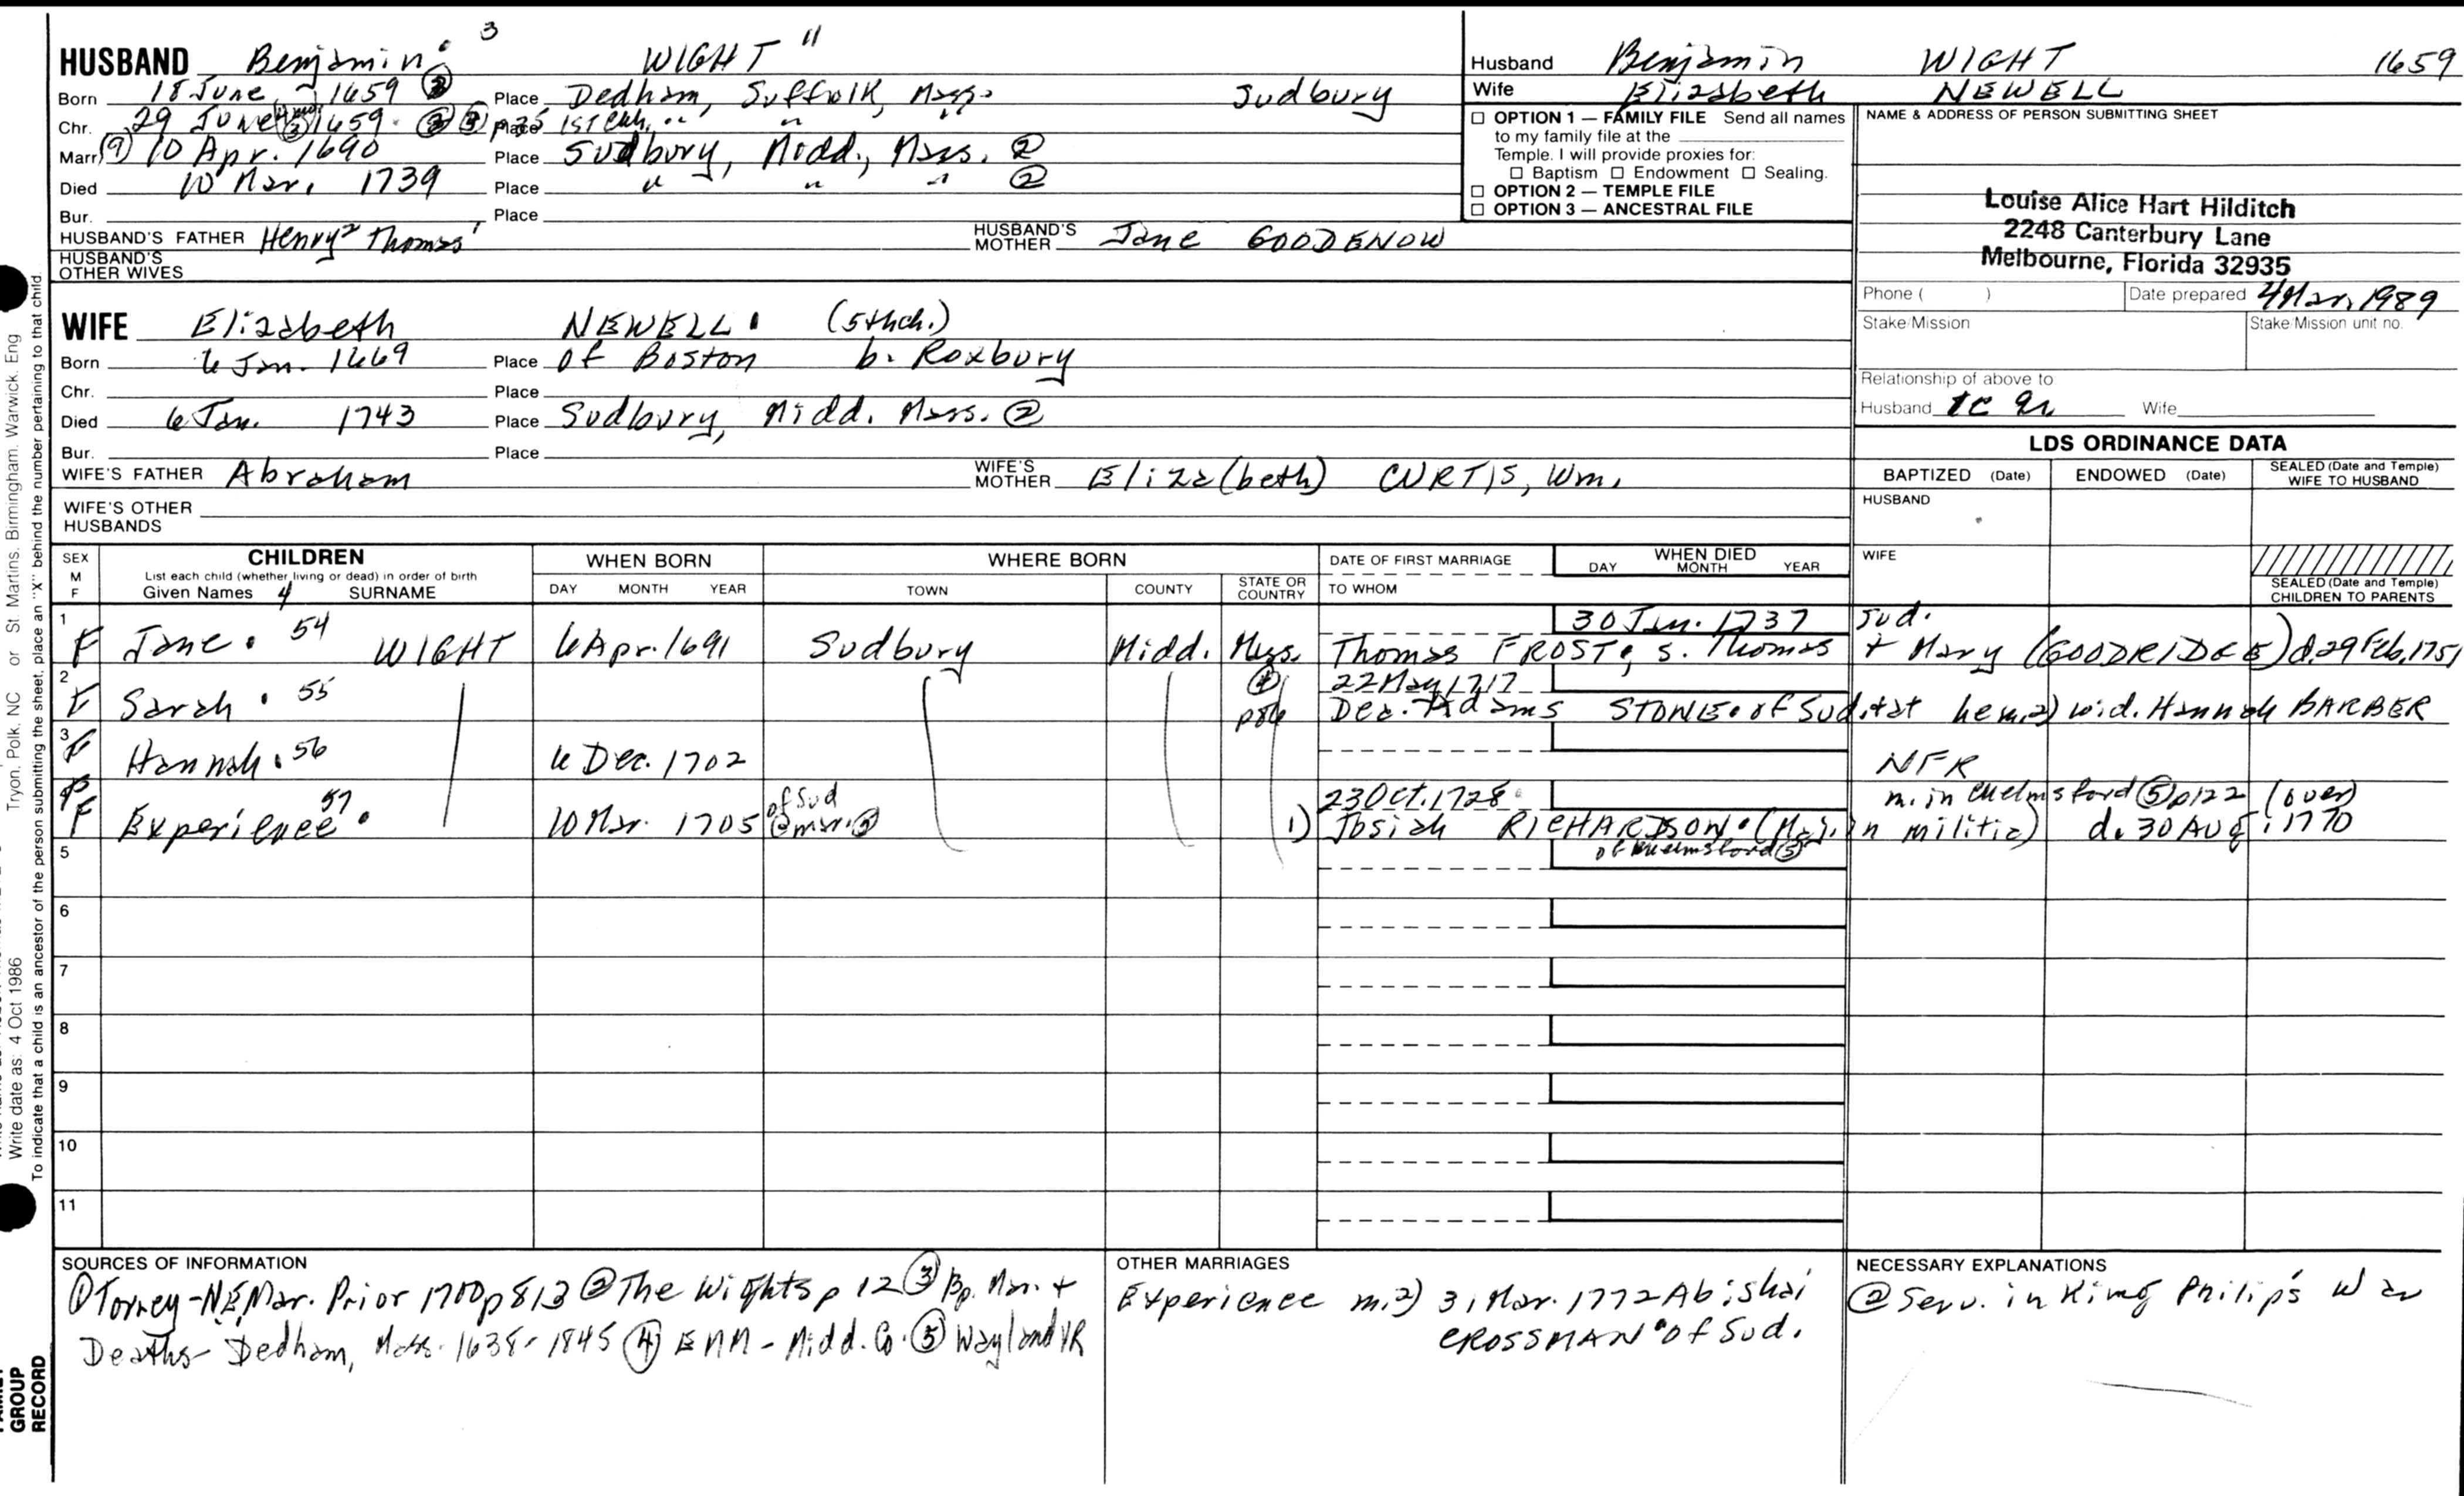 HUSBAND Benjamin 3 WIGHT 11
Born 18 June 1659 ② Place Dedham, Suffolk, Mass. Sudbury
Chr. 29 June 1659 ② ③ p35 Place 1st Chh. " " "
Marr. (9) 10 Apr. 1690 Place Sudbury, Midd., Mass. ②
Died 10 Mar. 1739 Place " " " ②
Bur. Place
HUSBAND'S FATHER Henry² Thomas¹ HUSBAND'S MOTHER Jane GOODENOW
HUSBAND'S OTHER WIVES
WIFE Elizabeth NEWELL (5th ch.)
Born 6 Jan. 1669 Place of Boston b. Roxbury
Chr. Place
Died 6 Jan. 1743 Place Sudbury, Midd. Mass. ②
Bur. Place
WIFE'S FATHER Abraham WIFE'S MOTHER Eliza(beth) CURTIS, Wm.
WIFE'S OTHER HUSBANDS
Husband Benjamin WIGHT 1659
Wife Elizabeth NEWELL
☐ OPTION 1 — FAMILY FILE Send all names
to my family file at the
Temple. I will provide proxies for:
☐ Baptism ☐ Endowment ☐ Sealing.
☐ OPTION 2 — TEMPLE FILE
☐ OPTION 3 — ANCESTRAL FILE
NAME & ADDRESS OF PERSON SUBMITTING SHEET
Louise Alice Hart Hilditch
2248 Canterbury Lane
Melbourne, Florida 32935
Phone ( ) Date prepared 4 Mar. 1989
Stake/Mission Stake/Mission unit no.
Relationship of above to
Husband Wife
LDS ORDINANCE DATA
BAPTIZED (Date) ENDOWED (Date) SEALED (Date and Temple) WIFE TO HUSBAND
HUSBAND
WIFE
SEALED (Date and Temple) CHILDREN TO PARENTS
SEX M F
CHILDREN
List each child (whether living or dead) in order of birth
Given Names 4 SURNAME
WHEN BORN
DAY MONTH YEAR
WHERE BORN
TOWN COUNTY STATE OR COUNTRY
DATE OF FIRST MARRIAGE
TO WHOM
WHEN DIED
DAY MONTH YEAR
1 30 Jan. 1737 Sud.
F Jane 54 WIGHT 6 Apr. 1691 Sudbury Midd. Mass. Thomas FROST, s. Thomas + Mary (GOODRIDGE) d. 29 Feb. 1751
2 ④ 22 May 1717
F Sarah 55 Dea. Adams STONE of Sud. he m. 2) wid. Hannah BARBER
3
F Hannah 56 6 Dec. 1702 NFR
23 Oct. 1728 m. in Chelmsford ⑤ p122 (over)
F Experience 57 10 Mar. 1705 of Sud @ mar. ⑤ 1) Josiah RICHARDSON (Maj. in militia) d. 30 Aug. 1770
5 of Chelmsford ⑤
6
7
8
9
10
11
SOURCES OF INFORMATION
① Torrey-NE Mar. Prior 1700 p813 ② The Wights p 12 ③ Bp. Mar. +
Deaths - Dedham, Mass. 1638-1845 ④ EMM - Midd. Co. ⑤ Wayland VR
OTHER MARRIAGES
Experience m. 2) 31 Mar. 1772 Abishai
CROSSMAN of Sud.
NECESSARY EXPLANATIONS
② Serv. in King Philip's War
Tryon, Polk, NC or St. Martins, Birmingham, Warwick, Eng
Write date as: 4 Oct 1986
To indicate that a child is an ancestor of the person submitting the sheet, place an "X" behind the number pertaining to that child.
GROUP
RECORD